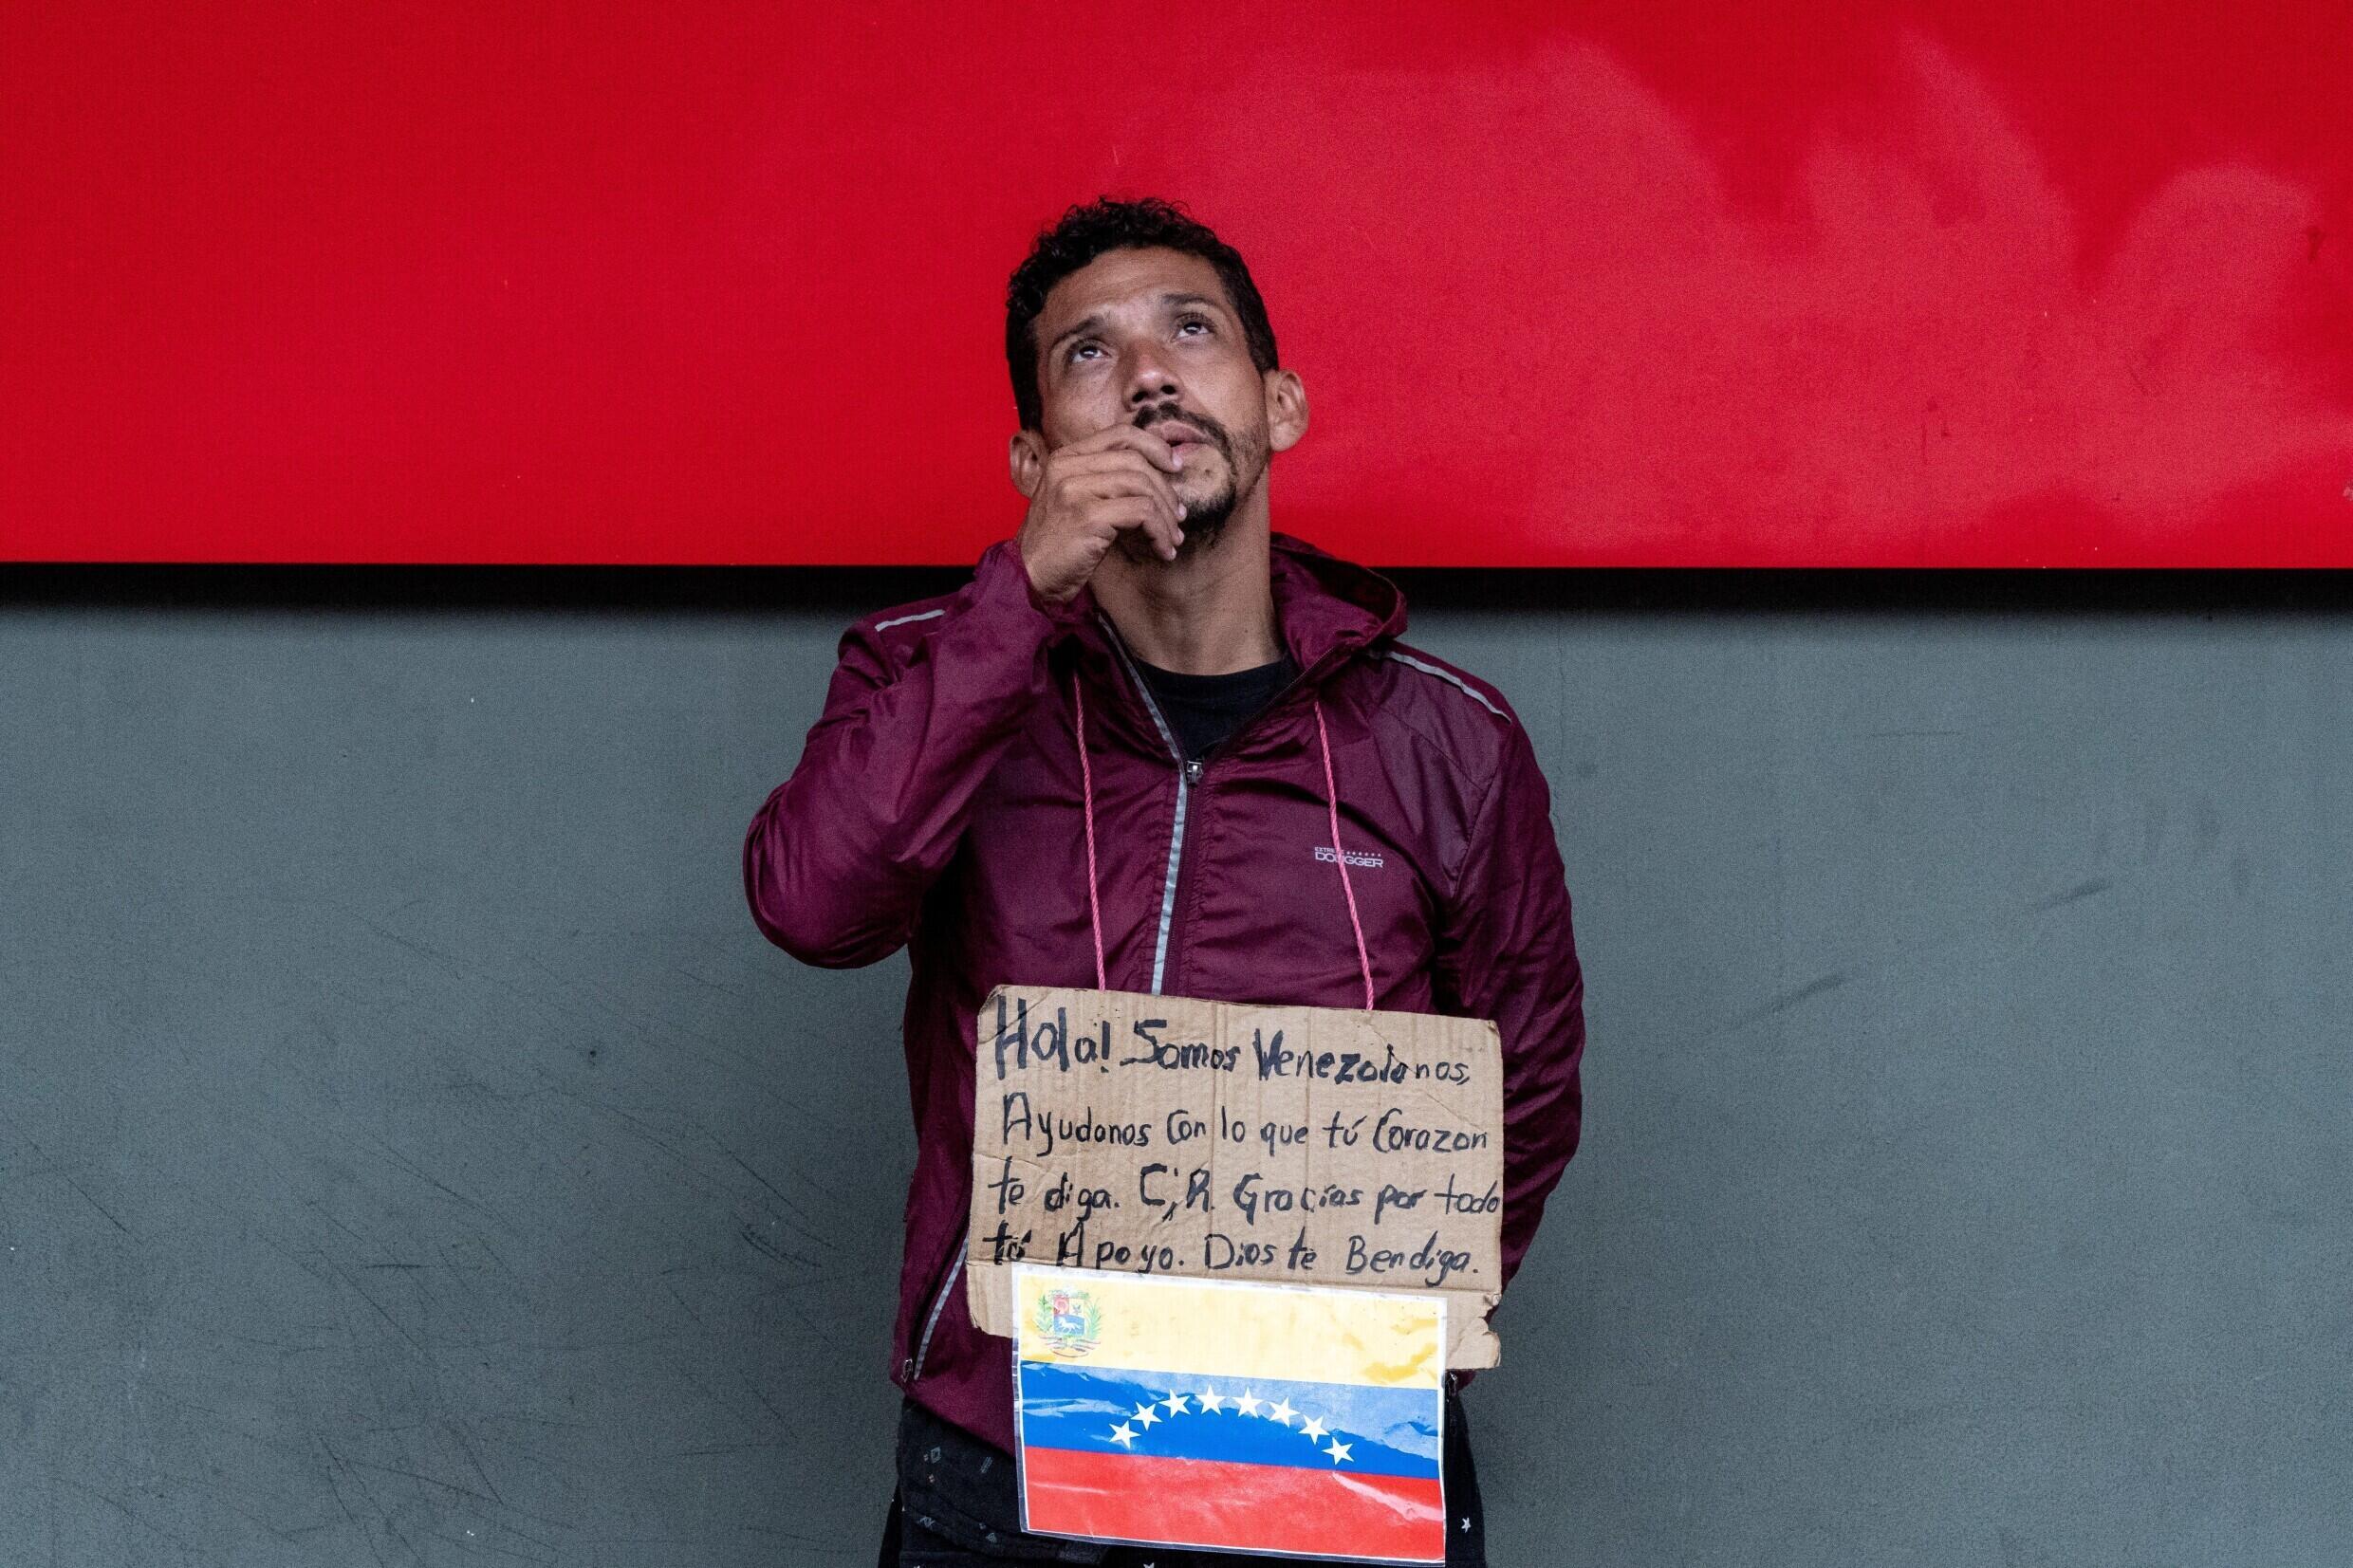 EXTREME
DOGGER
Hola! Somos Venezolanos,
Ayudanos Con lo que tú Corazon
te diga. C,R. Gracias por todo
tú Apoyo. Dios te Bendiga.